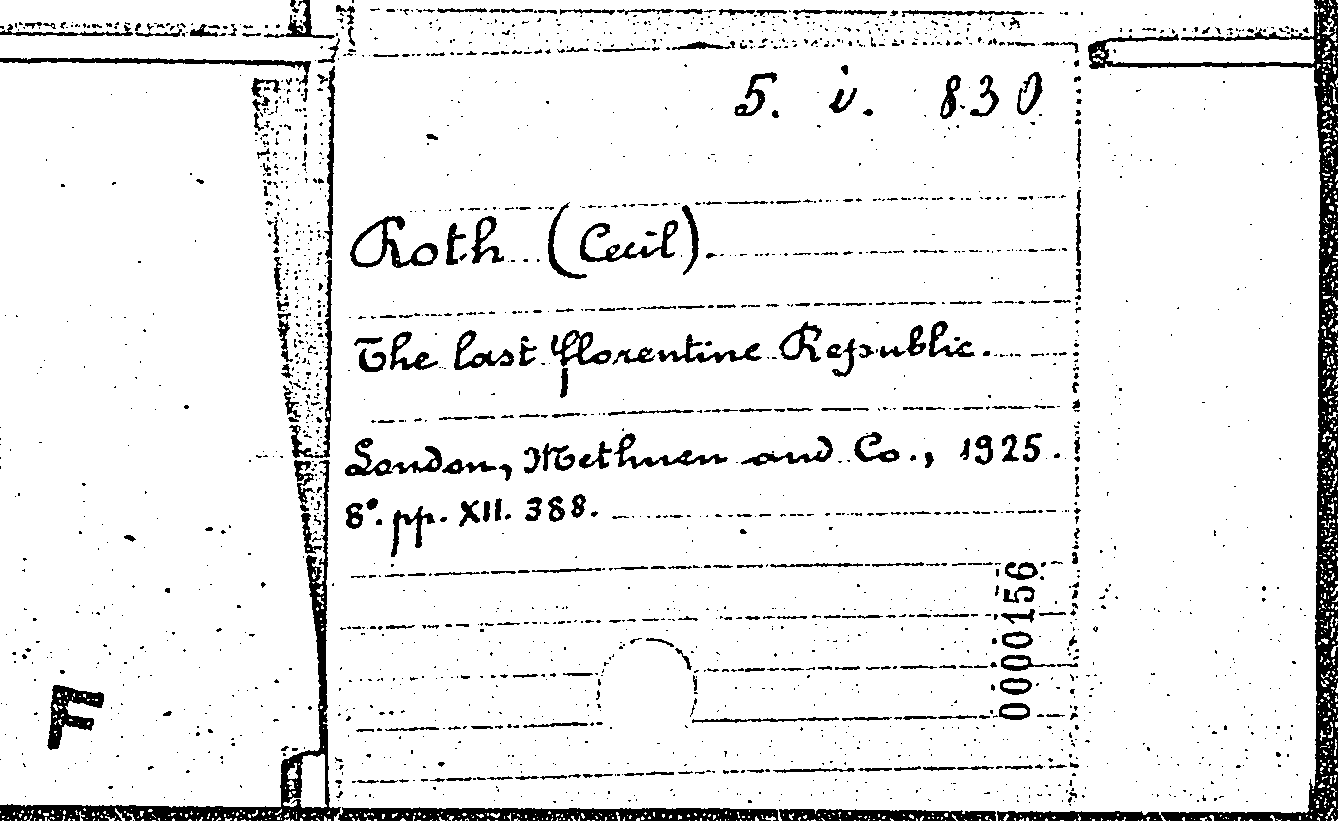 5. i. 830
Roth (Cecil).
The last florentine Republic.
London, Methuen and Co., 1925.
8°. pp. XII. 388.
0000156
F